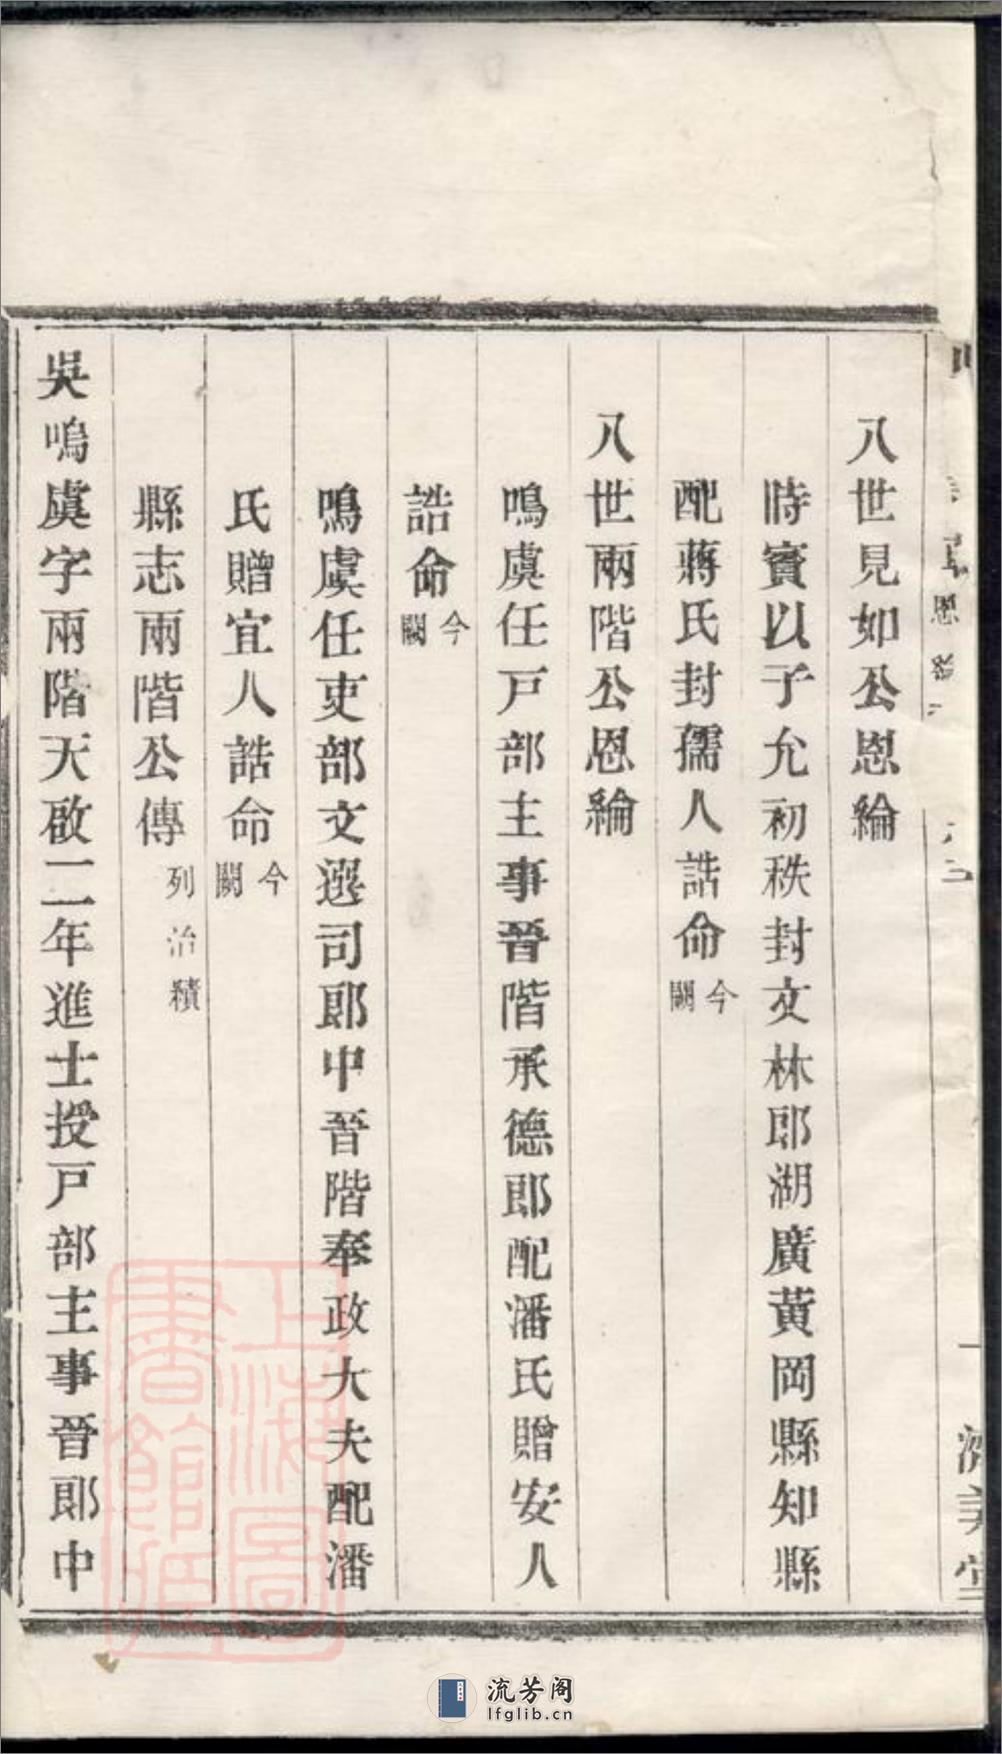 八世見如公恩綸
時賓以子允初秩封文林郎湖廣黃岡縣知縣
配蔣氏封孺人誥命今闕
八世兩階公恩綸
鳴虞任戸部主事晉階承德郎配潘氏贈安人
誥命今闕
鳴虞任吏部文選司郎中晉階奉政大夫配潘
氏贈宜人誥命今闕
縣志兩階公傳列治績
吳鳴虞字兩階天啟二年進士授戸部主事晉郎中
恩
濟美堂
上海圖書館藏
流芳阁
lfglib.cn